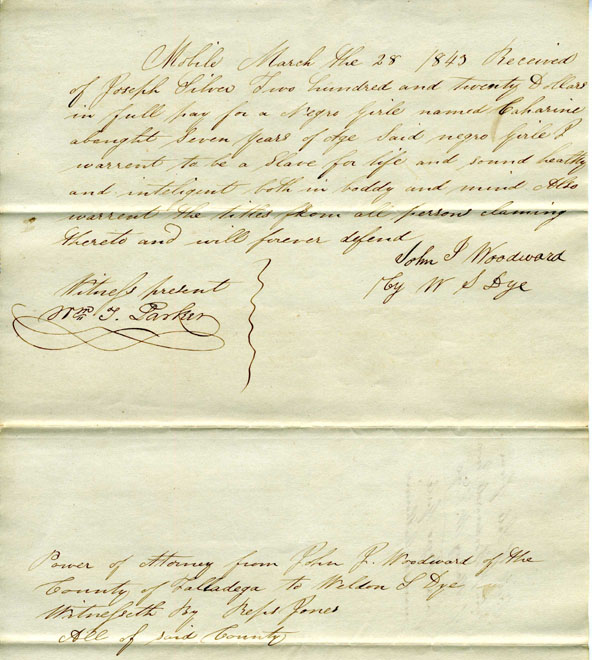 Mobile March the 28 1843 Received
of Joseph Silver Two hundred and twenty Dollars
in full pay for a Negro Girle named Catharine
abought Seven Years of Age Said negro Girle I
warrent to be a Slave for life and sound healthy
and inteligent both in boddy and mind Also
warrent the titles from all person claming
thereto and will forever defend
John J Woodward
By W S Dye
Witness present
Wm J. Parker
Power of Attorney from John J. Woodward of the
County of Talladega to Weldon S Dye
Witnesseth By Reps Jones
All of said County